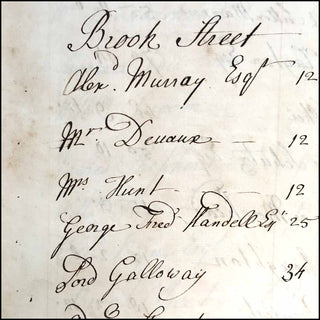 Brook Street
Alexd. Murray Esqr 12
Mr Devaux 12
Mrs Hunt 12
George Fred. Handell Esqr 25
Lord Galloway 34